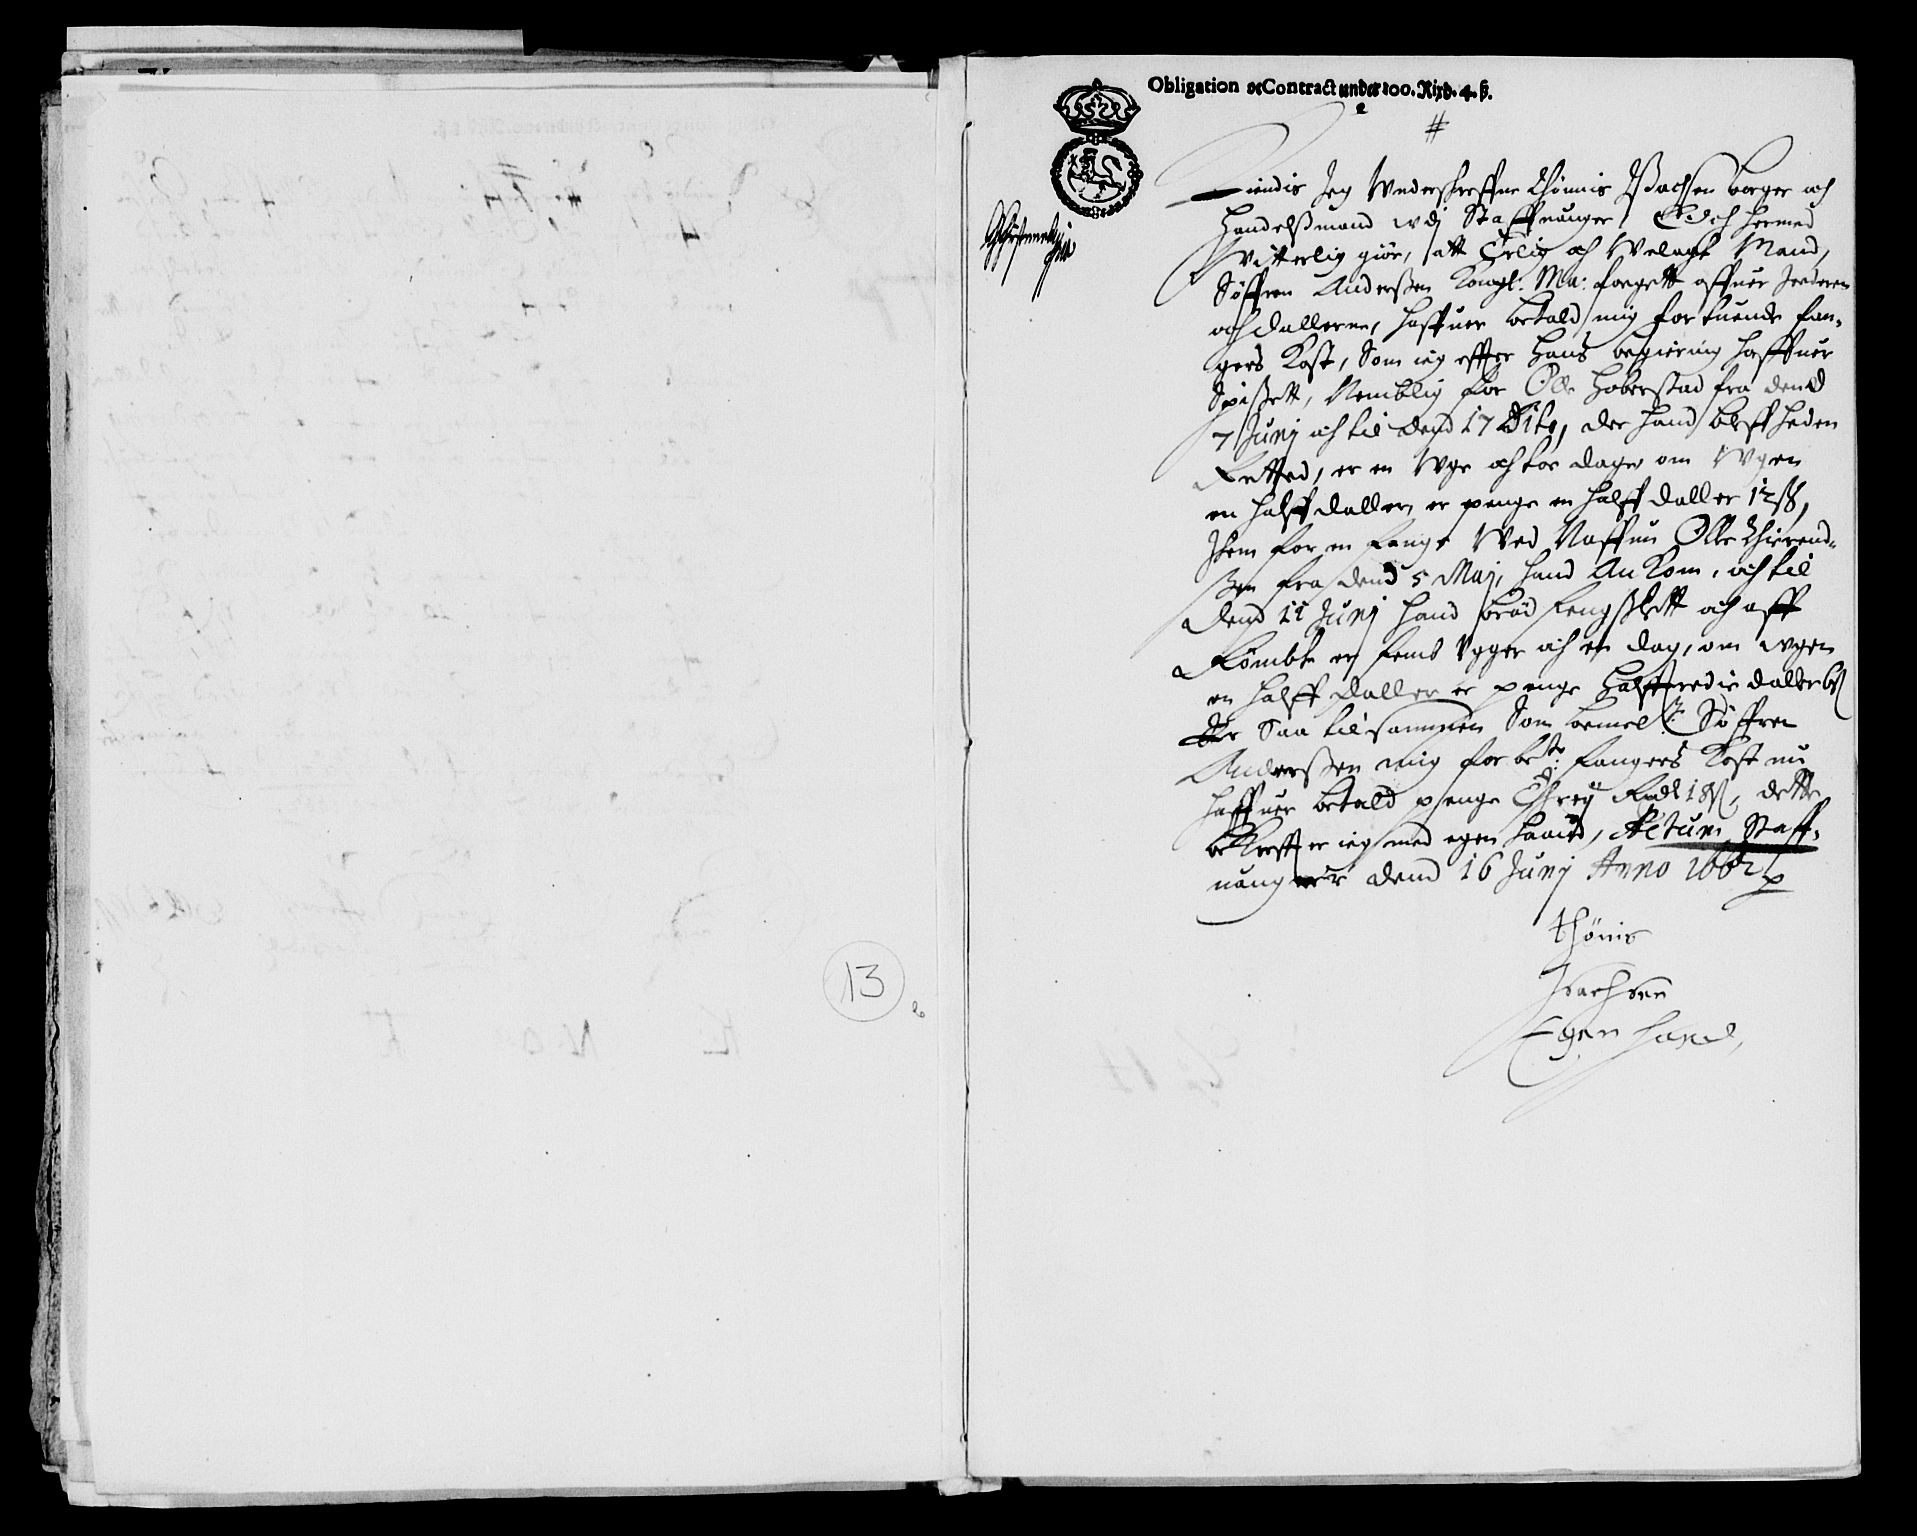 13
Obligation oc Contract under 100. Rixd. 4. ß.
#
Kiendis Jeg Underskreffne Thönnis Jsachsen borger och
Handelßmand wdj Staffuanger, och hermed
Witterlig giör, att Erlig och Welagt Mand,
Söffren Anderßen Kongl: Ma: fougett offuer Jederen
och dallerne, haffuer betald mig for tuende fan-
gers Kost, Som ieg effter Hans begiering haffuer
Spißett, Nemblig for Olle Hoberstad fra dend
7 Junj och til dend 17 Dito, der hand bleff heden
Retted, er en Uge och tre dage om Ugen
en halff daller, er penge en halff daller 12 ß,
Jtem for en fange Wed Naffun Olle
ßen fra dend 5 Maj, hand An Kom, och til
Dend 11 Junj hand bröd fengßlett och aff
Römbte er femb Uger och en dag, om ugen
en halff daller er penge halfftredie daller
Er Saa tilsammen Som bemelte Söffren
Anderßen mig for bte: fangers Kost nu
haffuer betald penge Threy Rdl 18 ß, dette
bekreffter ieg med egen haand, Actum Staff-
uanger dend 16 Junj Anno 1662
Thönis
Jsachsen
Egen hand,